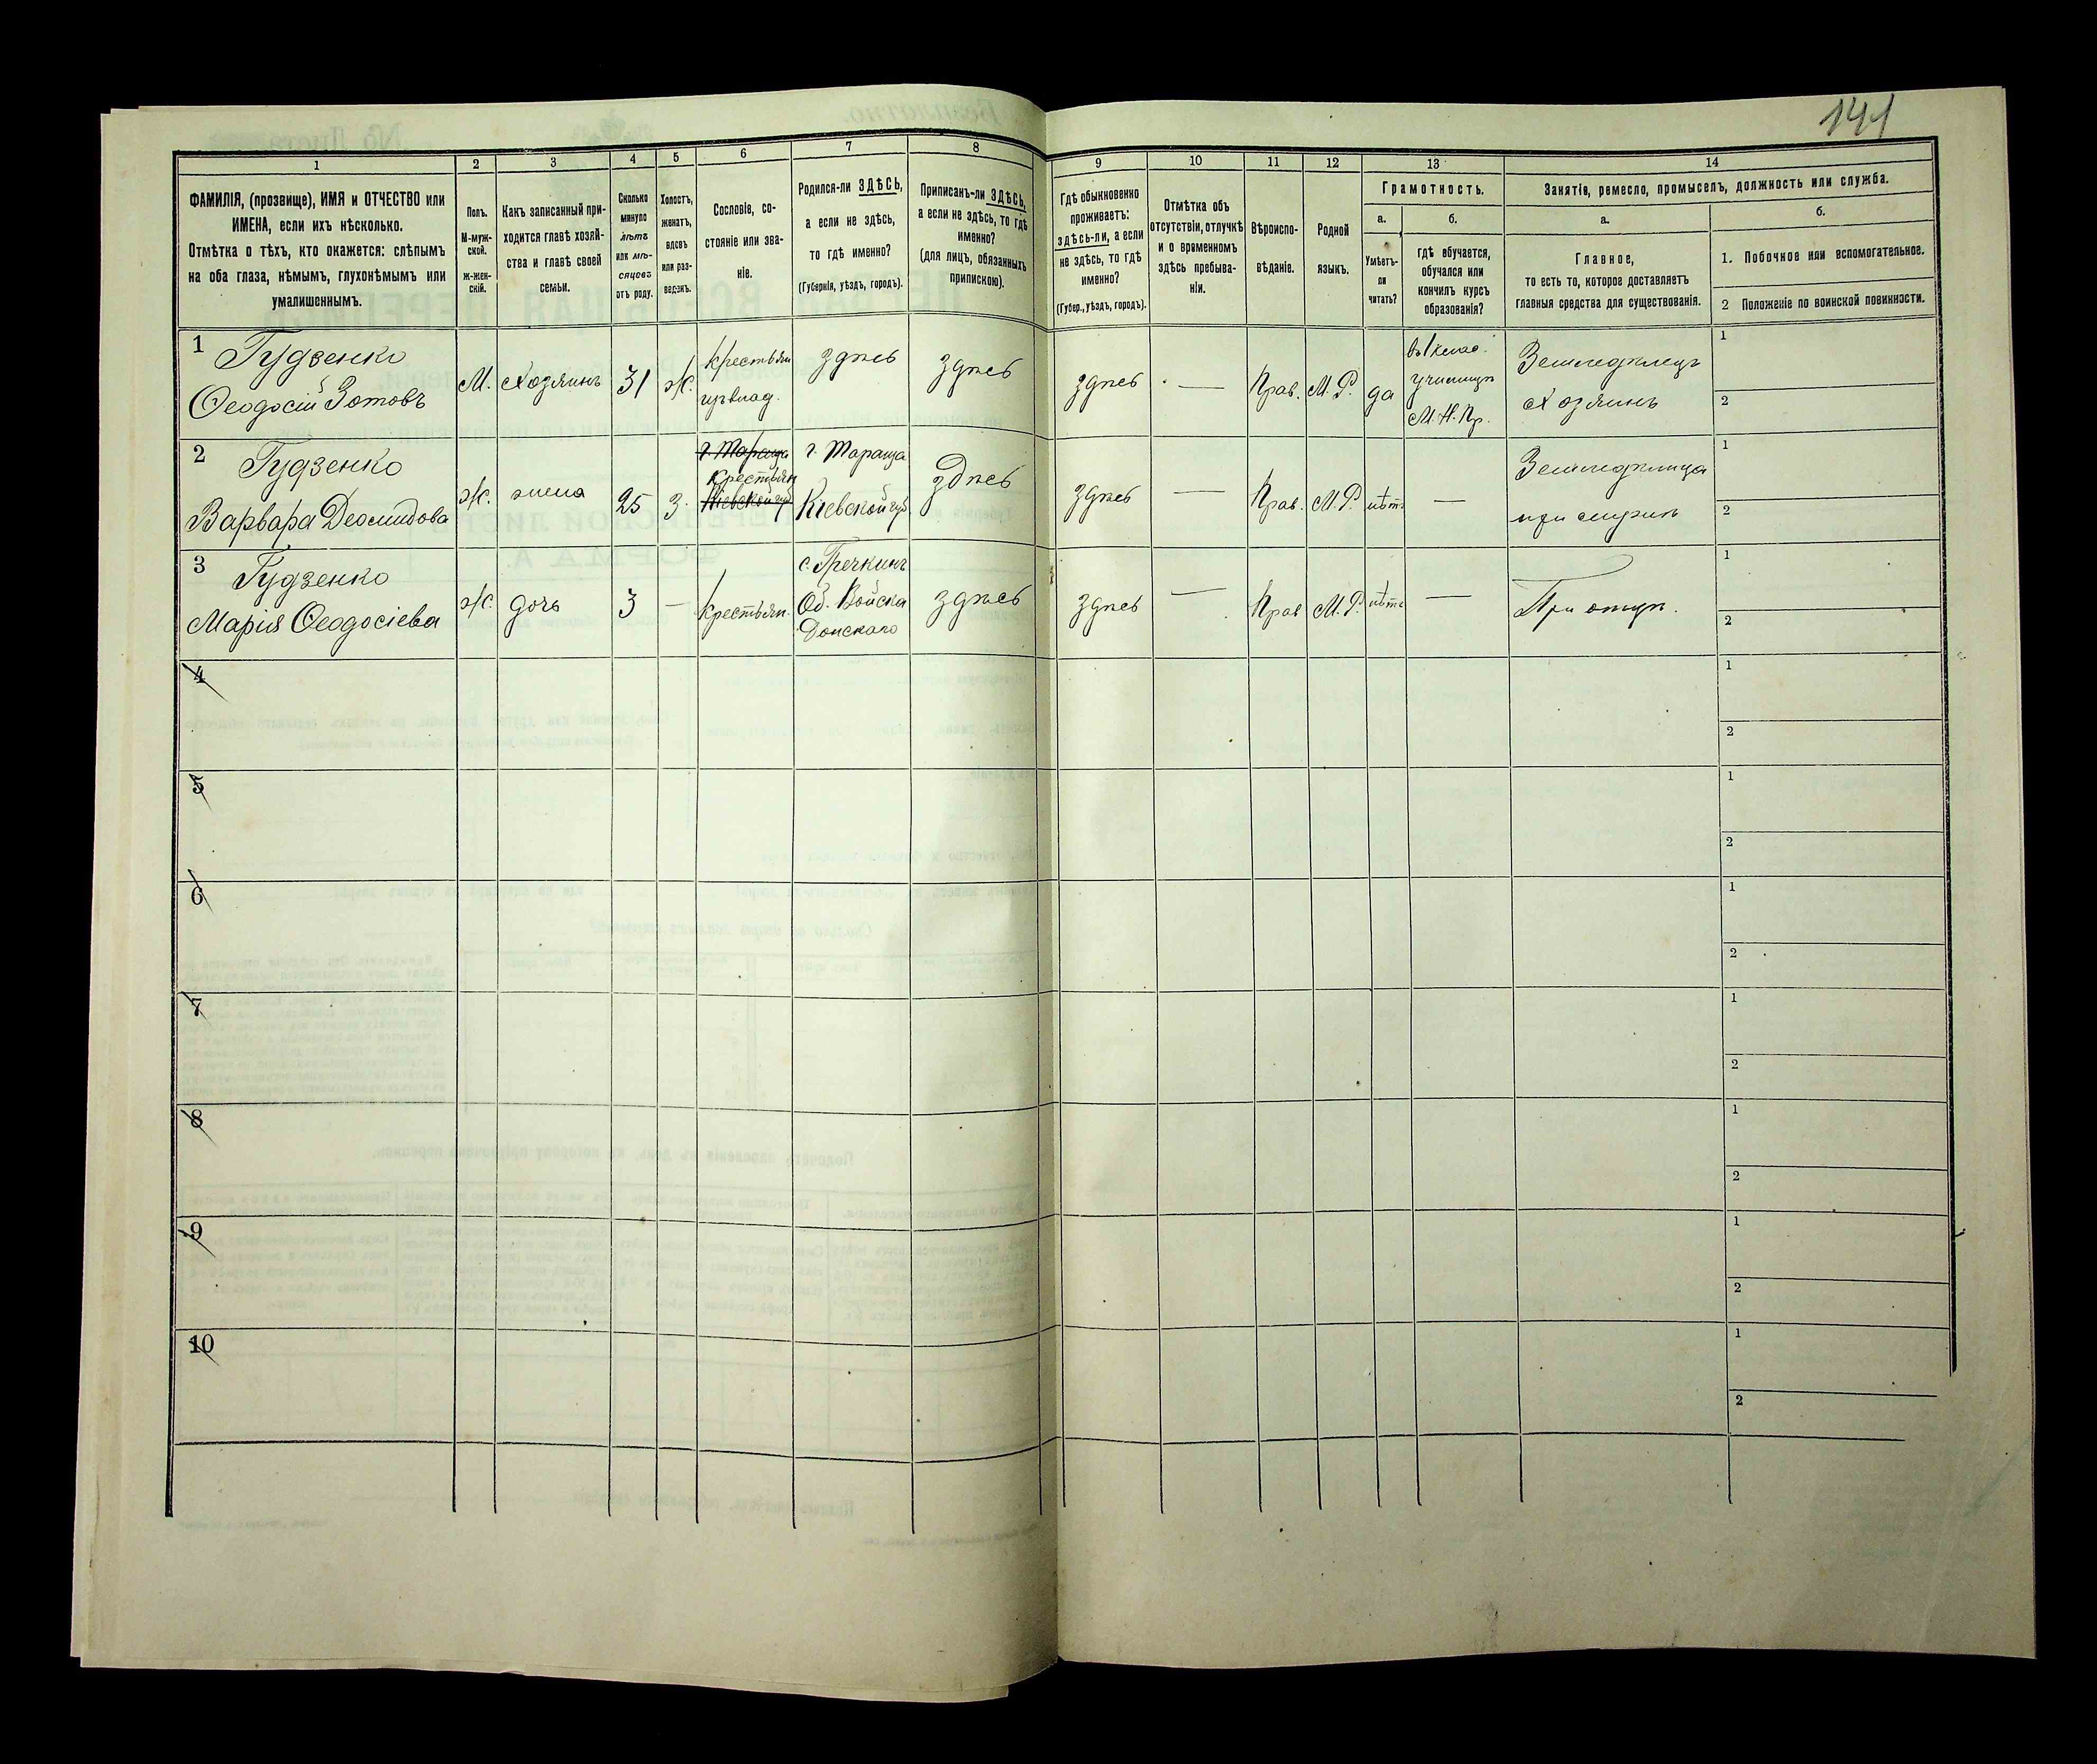 141
1
2
3
4
5
6
7
8
9
10
11
12
13
14
ФАМИЛІЯ, (прозвище), ИМЯ и ОТЧЕСТВО или
ИМЕНА, если ихъ нѣсколько.
Отмѣтка о тѣхъ, кто окажется: слѣпымъ
на оба глаза, нѣмымъ, глухонѣмымъ или
умалишеннымъ.
Полъ.
М-муж-
ской.
ж-жен-
скій.
Какъ записанный при-
ходится главѣ хозяй-
ства и главѣ своей
семьи.
Сколько
минуло
лѣтъ
или мѣ-
сяцевъ
отъ роду.
Холостъ,
женатъ,
вдовъ
или раз-
веденъ.
Сословіе, со-
стояніе или зва-
ніе.
Родился-ли ЗДѢСЬ,
а если не здѣсь,
то гдѣ именно?
(Губернія, уѣздъ, городъ).
Приписанъ-ли ЗДѢСЬ,
а если не здѣсь, то гдѣ
именно?
(для лицъ, обязанныхъ
припискою).
Гдѣ обыкновенно
проживаетъ:
здѣсь-ли, а если
не здѣсь, то гдѣ
именно?
(Губер., уѣздъ, городъ).
Отмѣтка объ
отсутствіи, отлучкѣ
и о временномъ
здѣсь пребыва-
ніи.
Вѣроиспо-
вѣданіе.
Родной
языкъ.
Грамотность.
а.
Умѣетъ-
ли
читать?
б.
гдѣ обучается,
обучался или
кончилъ курсъ
образованія?
Занятіе, ремесло, промыселъ, должность или служба.
а.
Главное,
то есть то, которое доставляетъ
главныя средства для существованія.
б.
1. Побочное или вспомогательное.
2 Положеніе по воинской повинности.
1 Гудзенко
Ѳеодосій Зотовъ
М.
Хозяинъ
31
ж.
крестьян
здѣсь
здѣсь
здѣсь
—
Прав.
М. Р.
да
въ 1 клас.
училищѣ
М. Н. Пр.
Земледѣлецъ
Хозяинъ
1
2
2 Гудзенко
Варвара Деомидова
ж.
жена
25
з.
г. Тараща
крестьян
Кіевской губ
г. Тараща
Кіевской губ.
здѣсь
здѣсь
—
Прав.
М. Р.
нѣтъ
—
Земледѣлица
при мужѣ
1
2
3 Гудзенко
Марія Ѳеодосіева
ж.
дочь
3
—
крестьян.
с. Гречкинъ
Об. Войска
Донскаго
здѣсь
здѣсь
—
Прав
М. Р.
нѣтъ
—
При отцѣ.
1
2
4
1
2
5
1
2
6
1
2
7
1
2
8
1
2
9
1
2
10
1
2